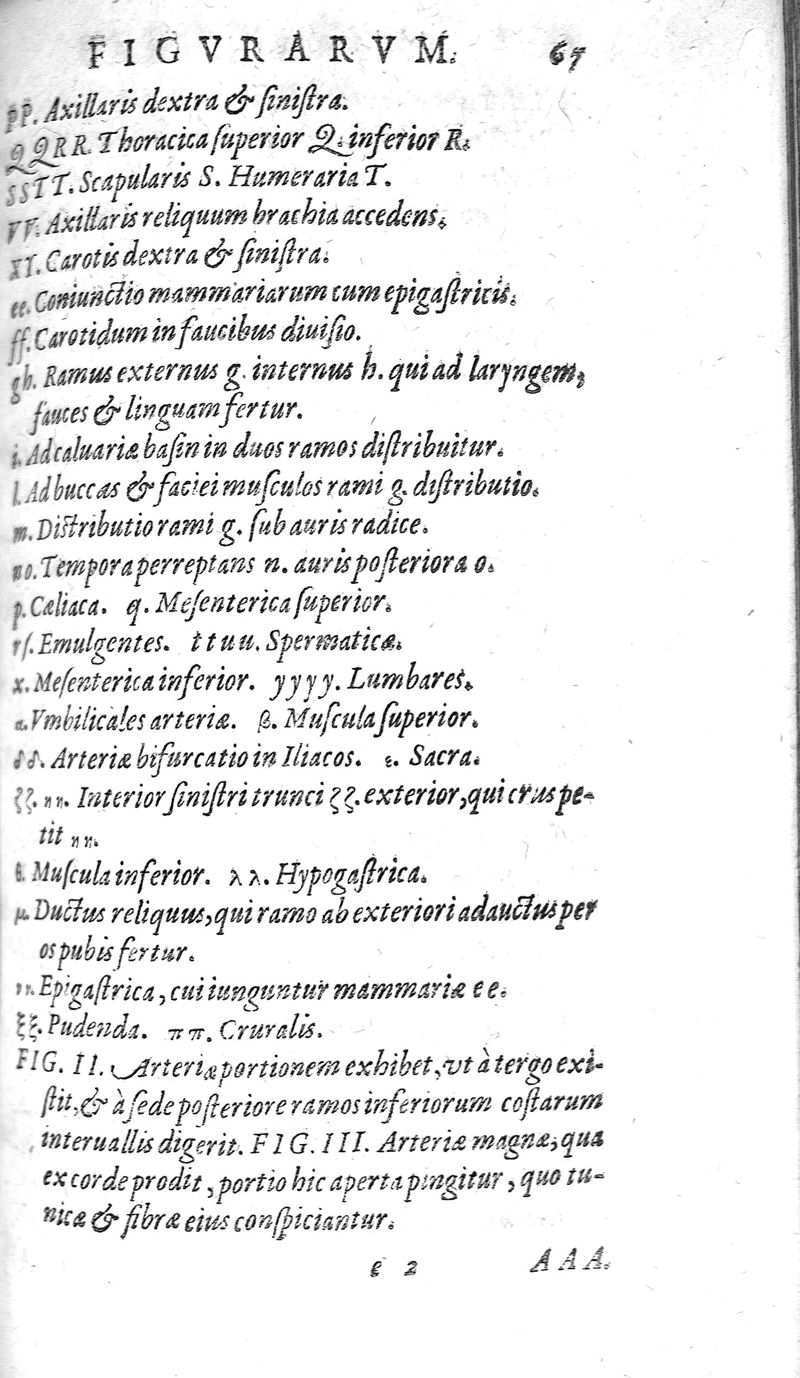 FIGVRARVM. 67
PP. Axillaris dextra & ſiniſtra.
QQRR. Thoracica ſuperior Q. inferior R.
SSTT. Scapularis S. Humeraria T.
VV. Axillaris reliquum brachia accedens.
XY. Carotis dextra & ſiniſtra.
ee. Coniunctio mammariarum cum epigaſtricis.
ff. Carotidum in faucibus diuiſio.
gh. Ramus externus g. internus h. qui ad laryngem,
fauces & linguam fertur.
i. Ad caluariæ baſin in duos ramos diſtribuitur.
l. Ad buccas & faciei muſculos rami g. diſtributio.
m. Diſtributio rami g. ſub auris radice.
no. Tempora perreptans n. auris poſteriora o.
p. Cæliaca. q. Meſenterica ſuperior.
rſ. Emulgentes. t t u u. Spermaticæ.
x. Meſenterica inferior. y y y y. Lumbares.
α. Vmbilicales arteriæ. β. Muſcula ſuperior.
δδ. Arteriæ bifurcatio in Iliacos. ε. Sacra.
ζζ. ηη. Interior ſiniſtri trunci ζζ. exterior, qui crus pe-
tit ηη.
θ. Muſcula inferior. λλ. Hypogaſtrica.
μ. Ductus reliquus, qui ramo ab exteriori adauctus per
os pubis fertur.
νν. Epigaſtrica, cui iunguntur mammariæ e e.
ξξ. Pudenda. ππ. Cruralis.
FIG. II. Arteriæ portionem exhibet, vt à tergo exi-
ſtit, & à ſede poſteriore ramos inferiorum coſtarum
interuallis digerit. FIG. III. Arteriæ magnæ, qua
ex corde prodit, portio hic aperta pingitur, quo tu-
nicæ & fibræ eius conſpiciantur.
e 2 AAA.